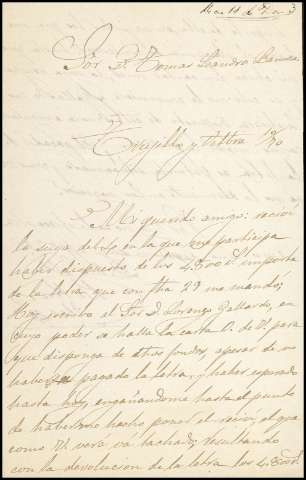 Sor Dn Tomas Leandro
Trujillo y
Mi querido amigo: recibí
la suya del 4 en la que me participa
haber dispuesto de los 4.500 importe
de la letra que con fha 29 me mandó;
Hoy escribo al Sor D. Lorenzo Gallardo, en
cuyo poder se halla la carta O. de V. para
que disponga de dhos fondos, apesar de no
haber pagado la letra, y haber esperado
hasta hoy, engañandome hasta el punto
de haberme hecho poner el recibí, el que
como V. verá vá tachado; resultando
con la devolucion de la letra los 4.500